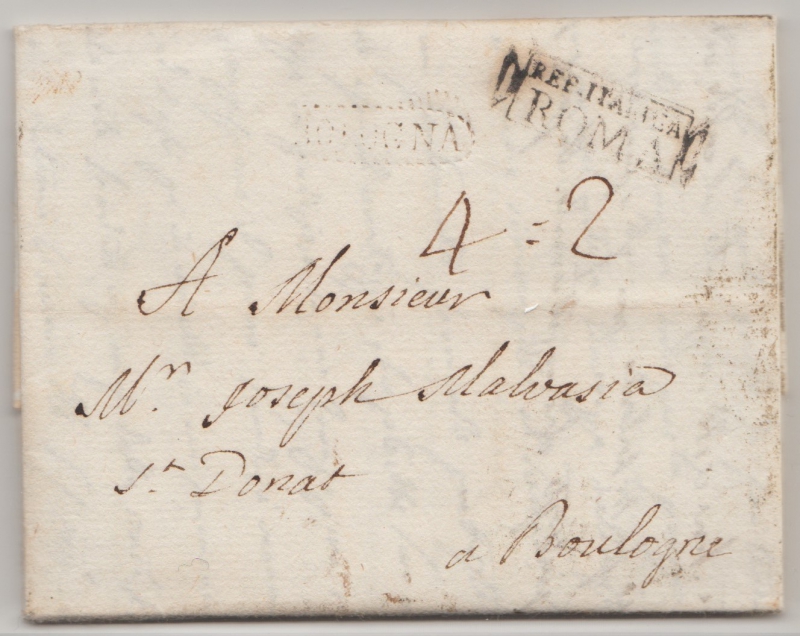 REP. ITALICA
ROMA
BOLOGNA
4 = 2
A Monsieur
Mr. Joseph Malvasia
St. Donat
a Boulogne